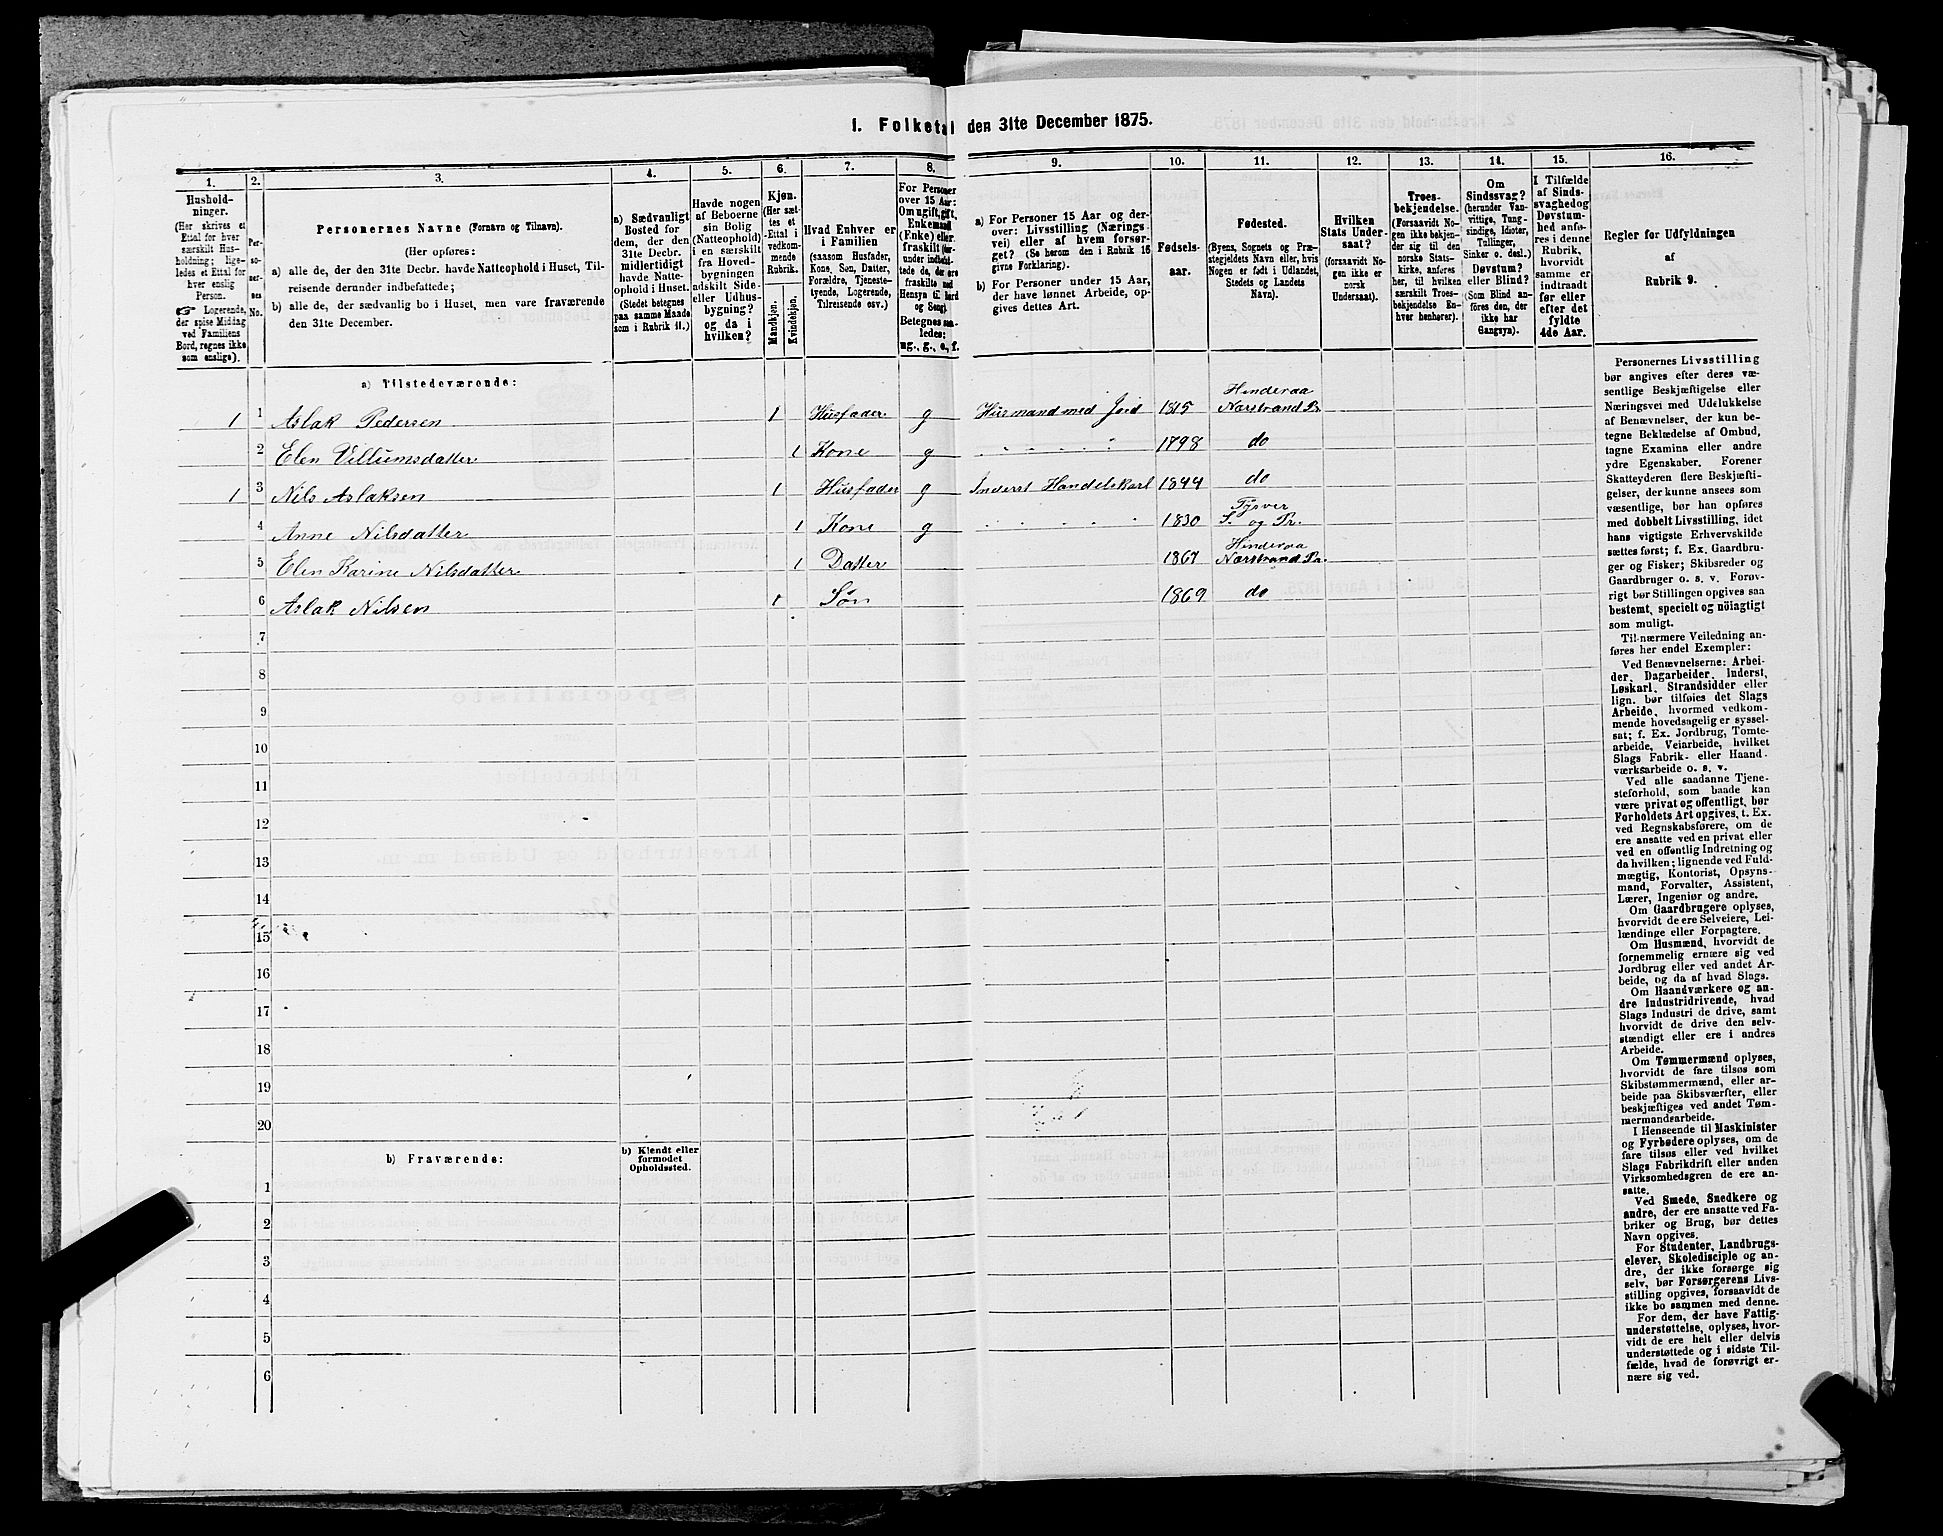 1. Folketal den 31te December 1875.
1.
2.
3.
4.
5.
6.
7.
8.
9.
10.
11.
12.
13.
14.
15.
16.
Hushold-
ninger.
(Her skrives et
Ettal for hver
særskilt Hus-
holdning; lige-
ledes et Ettal for
hver enslig
Person.
☞ Logerende,
der spise Middag
ved Familiens
Bord, regnes ikke
som enslige).
Per-
so-
ner-
nes
No.
Personernes Navne (Fornavn og Tilnavn).
(Her opføres:
a) alle de, der den 31te Decbr. havde Natteophold i Huset, Til-
reisende derunder indbefattede;
b) alle de, der sædvanlig bo i Huset, men vare fraværende
den 31te December.
a) Sædvanligt
Bosted for
dem, der den
31te Decbr.
midlertidigt
havde Natte-
ophold i Huset.
(Stedet betegnes
paa samme Maade
som i Rubrik 11.)
Havde nogen
af Beboerne
sin Bolig
(Natteophold)
i en særskilt
fra Hoved-
bygningen
adskilt Side-
eller Udhus-
bygning?
og da i
hvilken?
Kjøn.
(Her sæt-
tes et
Ettal i
vedkom-
mende
Rubrik.
Mandkjøn.
Kvindekjøn.
Hvad Enhver er
i Familien
(saasom Husfader,
Kone, Søn, Datter,
Forældre, Tjeneste-
tyende, Logerende,
Tilreisende osv.)
For Personer
over 15 Aar:
Om ugift, gift,
Enkemand
(Enke) eller
fraskilt (her-
under indbefat-
tede de, der ere
fraskilte med
Hensyn til Bord
og Seng).
Betegnes saa-
ledes:
ug., g., e., f.
a) For Personer 15 Aar og der-
over: Livsstilling (Nærings-
vei) eller af hvem forsør-
get? (Se herom den i Rubrik 16
givne Forklaring).
b) For Personer under 15 Aar,
der have lønnet Arbeide, op-
gives dettes Art.
Fødsels-
aar.
Fødested.
(Byens, Sognets og Præ-
stegjeldets Navn eller, hvis
Nogen er født i Udlandet,
Stedets og Landets
Navn).
Hvilken
Stats Under-
saat?
(forsaavidt No-
gen ikke er
norsk
Undersaat).
Troes-
bekjendelse.
(Forsaavidt No-
gen ikke bekjen-
der sig til den
norske Stats-
kirke, anføres
her vedkommende
særskilt Troes-
bekjendelse En-
hver henhører).
Om
Sindssvag?
(herunder Van-
vittige, Tung-
sindige, Idioter,
Tullinger,
Sinker o. desl.)
Døvstum?
eller Blind?
(Som Blind an-
føres den, der
ikke har
Gangsyn).
I Tilfælde
af Sinds-
svaghed og
Døvstum-
hed anfø-
res i denne
Rubrik,
hvorvidt
samme er
indtraadt
før eller
efter det
fyldte
4de Aar.
Regler for Udfyldningen
af
Rubrik 9.
a) Tilstedeværende:
1 1 Aslak Pedersen 1 Husfader g Husmand med Jord 1815 Hinderaa Nærstrand Pr.
2 Elen Villumsdatter 1 Kone g " " " " 1798 do
1 3 Nils Aslaksen 1 Husfader g Inderst Handelskarl 1844 do
4 Anne Nilsdatter 1 Kone g " " " " 1830 Tysver S. og Pr.
5 Elen Karine Nilsdatter 1 Datter 1867 Hinderaa Nærstrand Pr.
6 Aslak Nilsen 1 Søn 1869 do
7
8
9
10
11
12
13
14
15
16
17
18
19
20
b) Fraværende:
b) Kjendt eller
formodet
Opholdssted.
1
2
3
4
5
6
Personernes Livsstilling
bør angives efter deres væ-
sentlige Beskjæftigelse eller
Næringsvei med Udelukkelse
af Benævnelser, der kun be-
tegne Beklædelse af Ombud,
tagne Examina eller andre
ydre Egenskaber. Forener
Skatteyderen flere Beskjæfti-
gelser, der kunne ansees som
væsentlige, bør han opføres
med dobbelt Livsstilling, idet
hans vigtigste Erhvervskilde
sættes først; f. Ex. Gaardbru-
ger og Fisker; Skibsreder og
Gaardbruger o. s. v. Forøv-
rigt bør Stillingen opgives saa
bestemt, specielt og nöiagtigt
som muligt.
Til nærmere Veiledning an-
føres her endel Exempler:
Ved Benævnelserne: Arbei-
der, Dagarbeider, Inderst,
Løskarl, Strandsidder eller
lign. bør tilføies det Slags
Arbeide, hvormed vedkom-
mende hovedsagelig er syssel-
sat; f. Ex. Jordbrug, Tomte-
arbeide, Veiarbeide, hvilket
Slags Fabrik- eller Haand-
værksarbeide o. s. v.
Ved alle saadanne Tjene-
steforhold, som baade kan
være privat og offentligt, bør
Forholdets Art opgives, t. Ex.
ved Regnskabsførere, om de
ere ansatte ved en privat eller
ved en offentlig Indretning og
da hvilken; lignende ved Fuld-
mægtig, Kontorist, Opsyns-
mand, Forvalter, Assistent,
Lærer, Ingeniør og andre.
Om Gaardbrugere oplyses,
hvorvidt de ere Selveiere, Lei-
lændinge eller Forpagtere.
Om Husmænd, hvorvidt de
fornemmelig ernære sig ved
Jordbrug eller ved andet Ar-
beide, og da af hvad Slags.
Om Haandværkere og an-
dre Industridrivende, hvad
Slags Industri de drive, samt
hvorvidt de drive den selv-
stændigt eller ere i andres
Arbeide.
Om Tømmermænd oplyses,
hvorvidt de fare tilsøs som
Skibstømmermænd, eller ar-
beide paa Skibsværfter, eller
beskjæftiges ved andet Tøm-
mermandsarbeide.
I Henseende til Maskinister
og Fyrbødere oplyses, om de
fare tilsøs eller ved hvilket
Slags Fabrikdrift eller anden
Virksomhedsgren de ere an-
satte.
Ved Smede, Snedkere og
andre, der ere ansatte ved Fa-
briker og Brug, bør dettes
Navn opgives.
For Studenter, Landbrugs-
elever, Skoledisciple og an-
dre, der ikke forsørge sig
selv, bør Forsørgerens Livs-
stilling opgives, forsaavidt de
ikke bo sammen med denne.
For dem, der have Fattig-
understøttelse, oplyses, hvor-
vidt de ere helt eller delvis
understøttede og i sidste Til-
fælde, hvad de forøvrigt er-
nære sig ved.